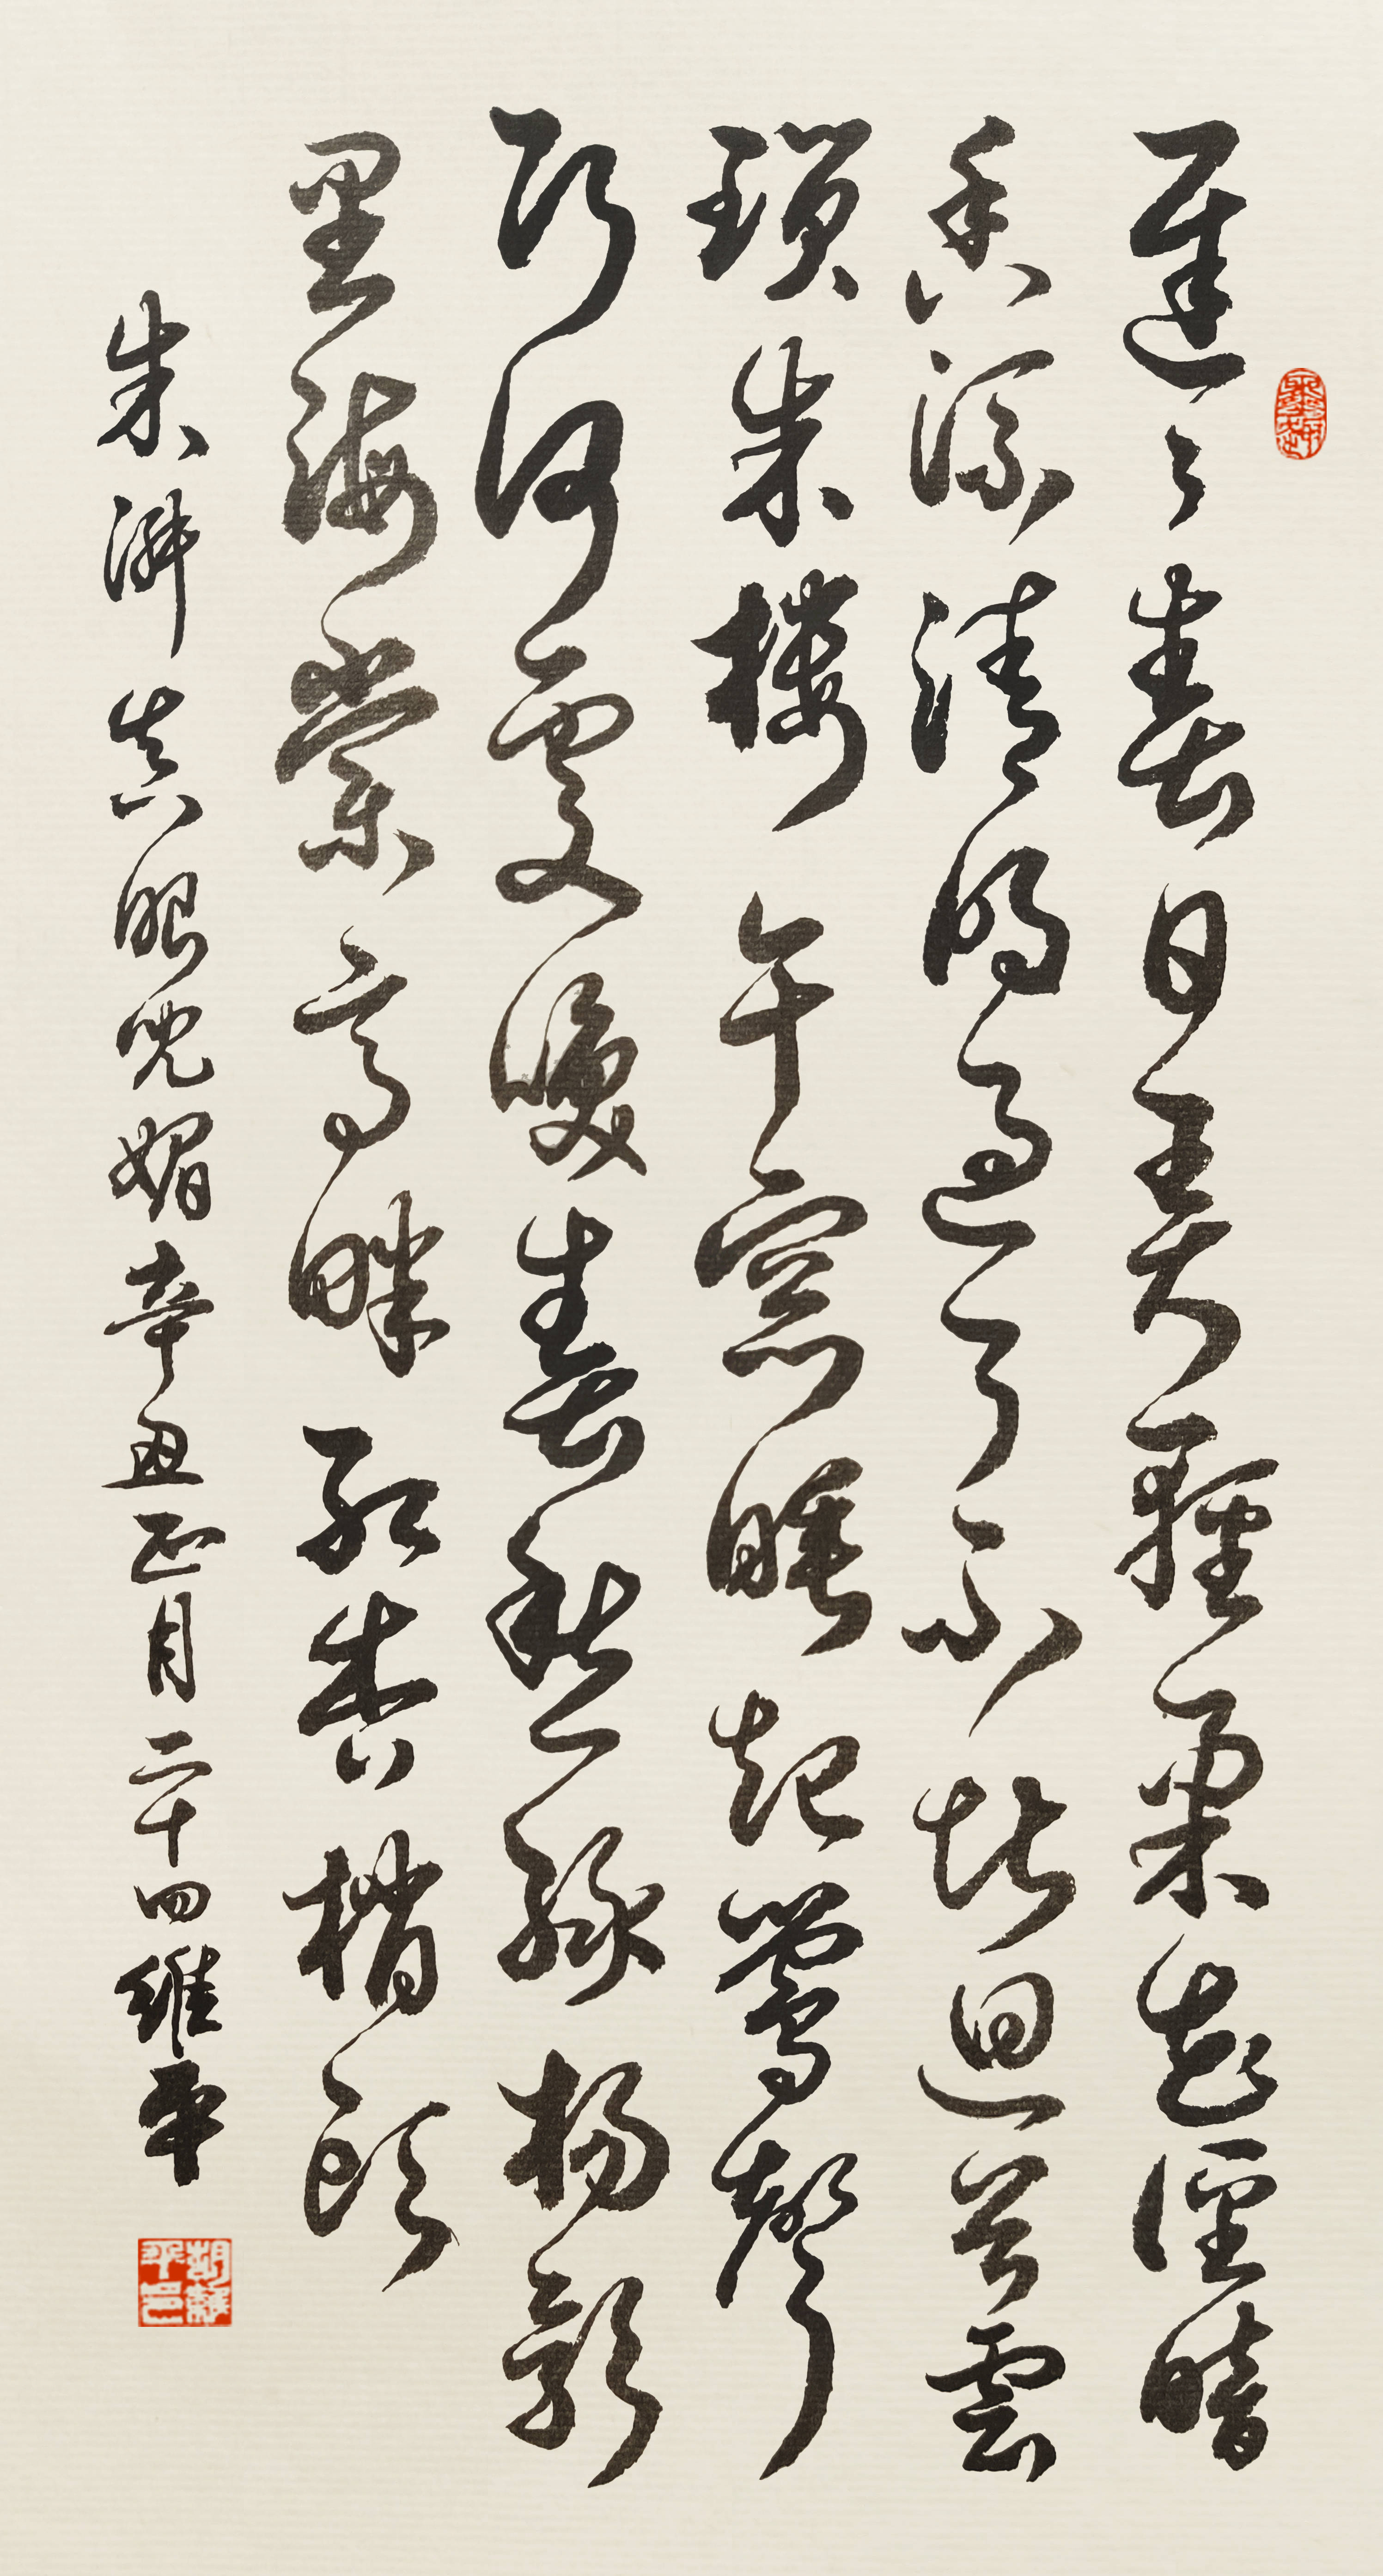 遲々春日弄輕柔花徑暗
香流清明過了不堪迴首雲
瑣朱樓午窓睡起鶯聲
巧何處喚春愁綠楊影
里海棠亭畔紅杏梢頭
朱淑真眼兒媚辛丑正月二十四維平
胡維平印